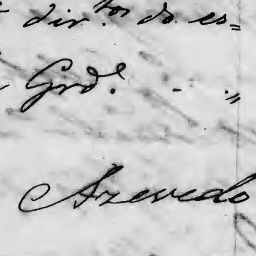 dir.tos do es=
Grd.e . . "
Azevedo